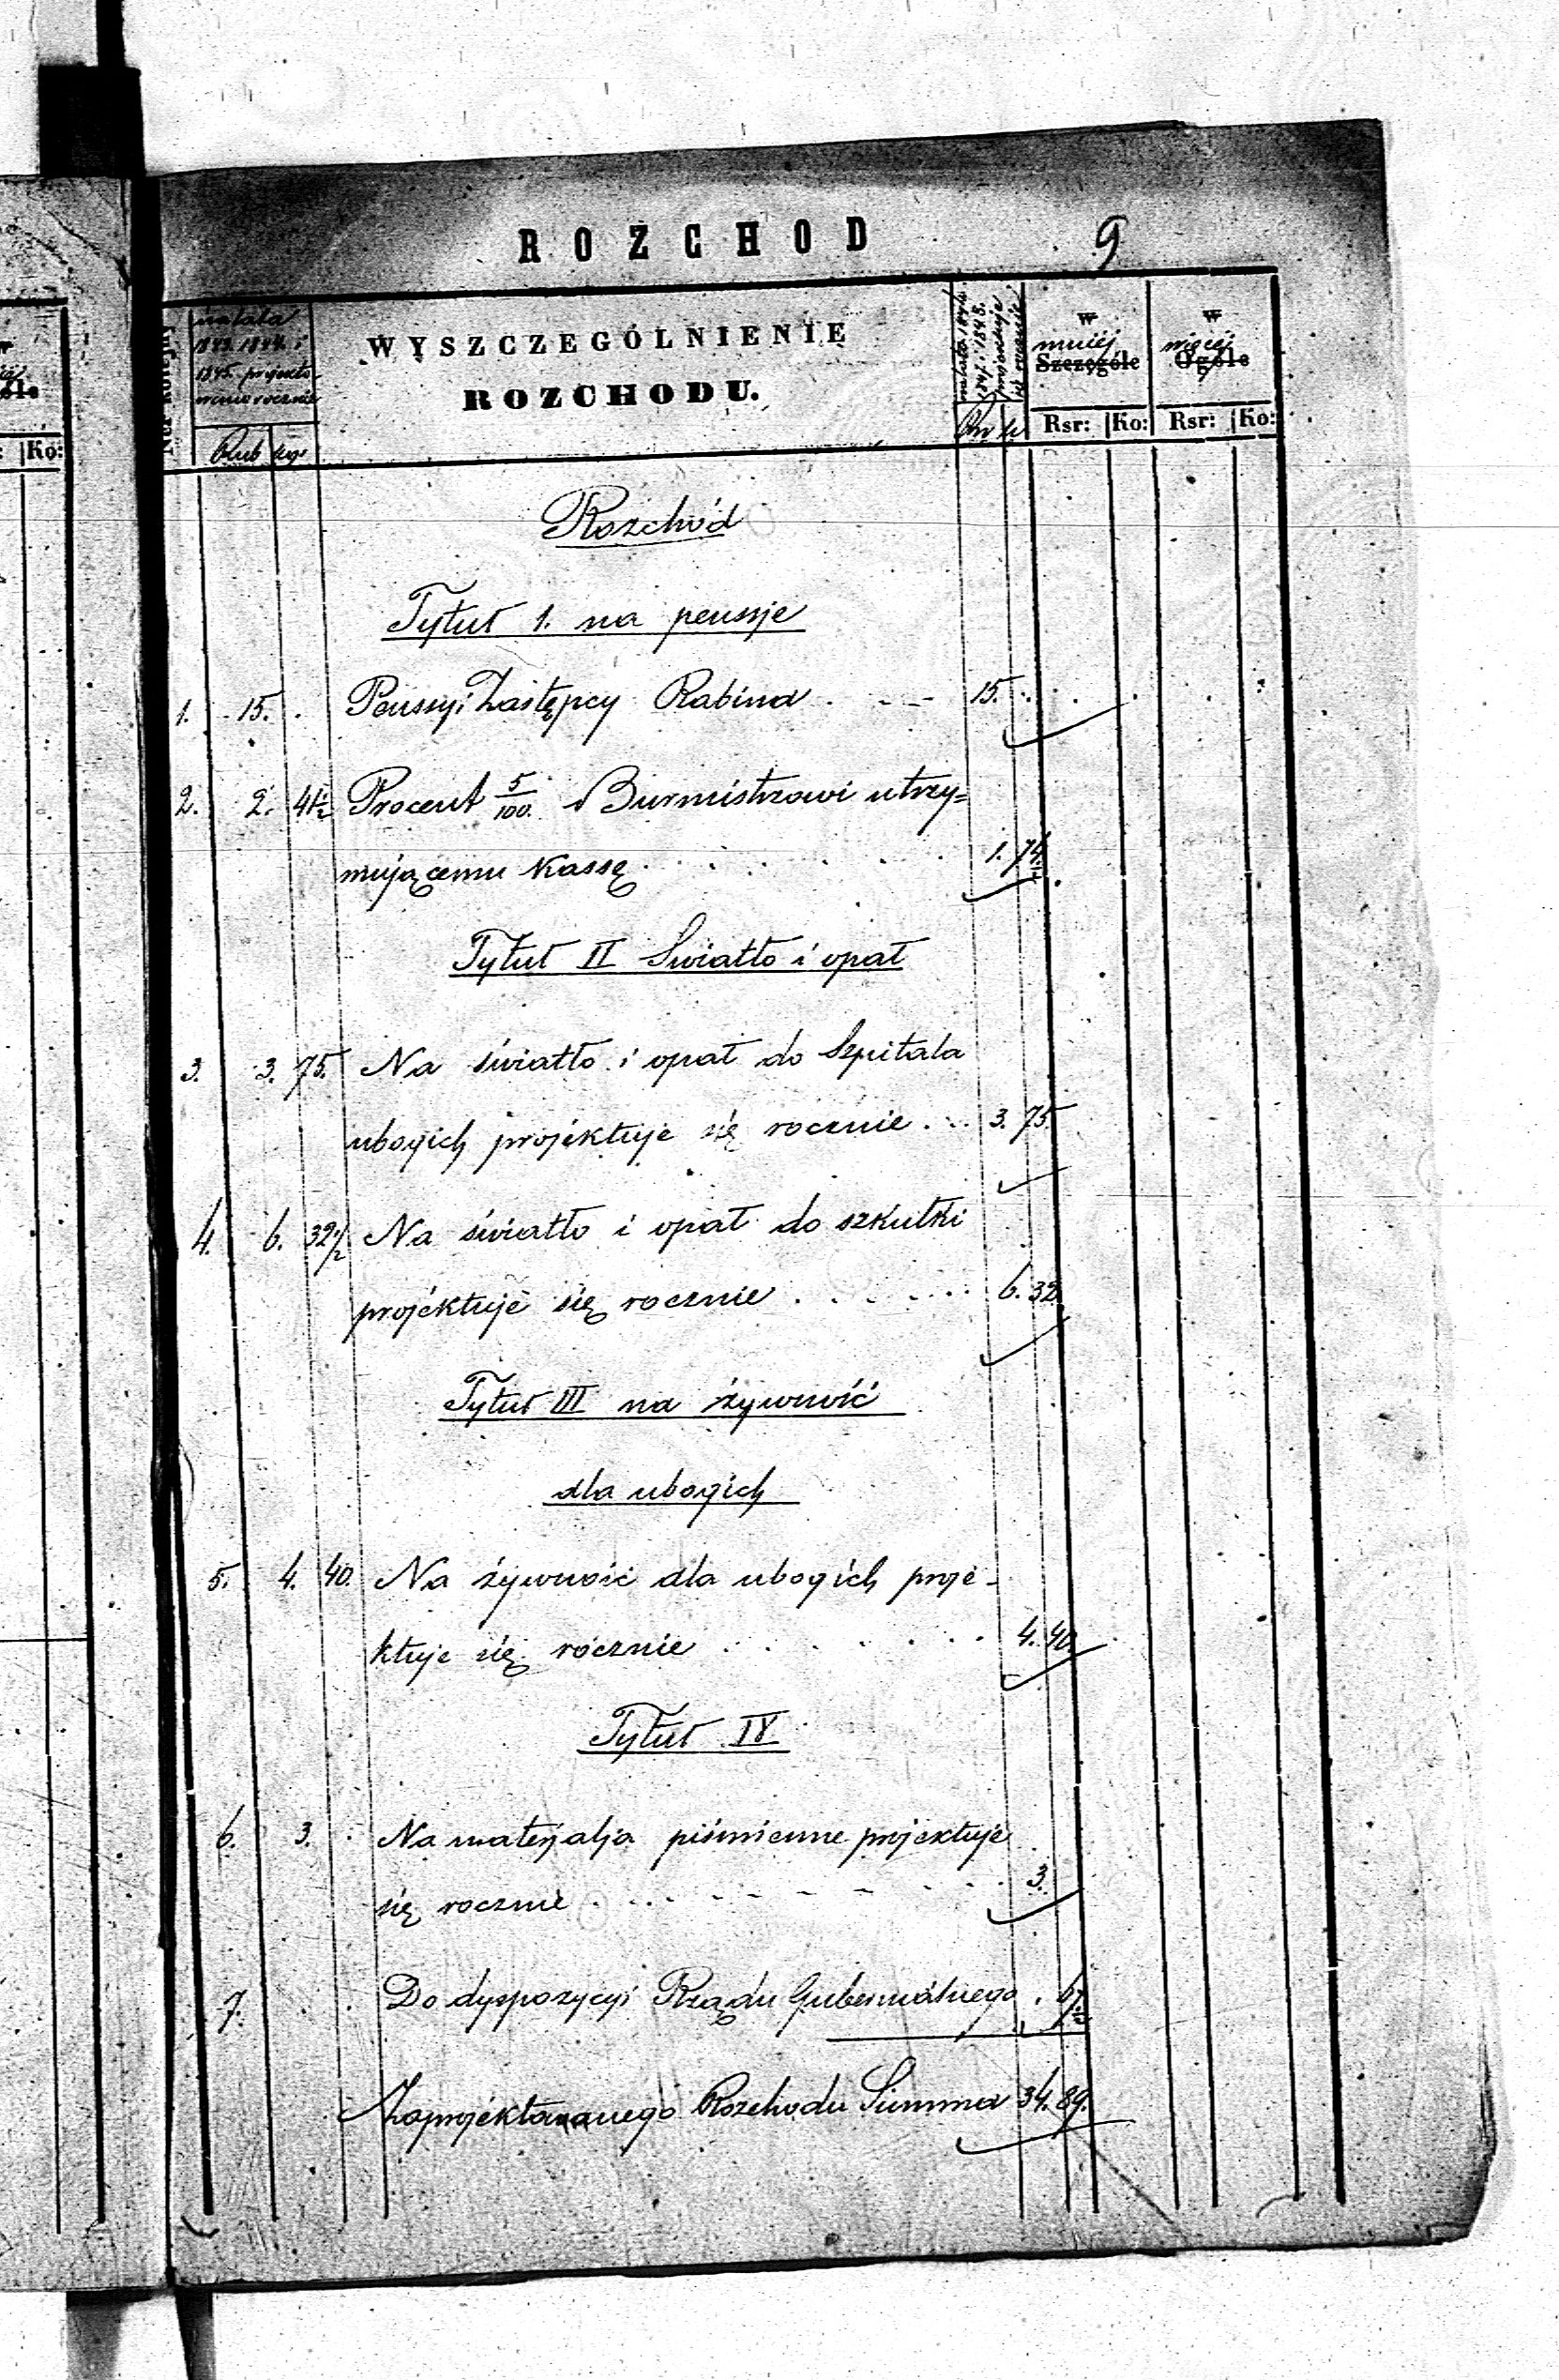 ROZCHOD
9
Ner kolejny
na lata
1843. 1844. i
1845. projekto-
rocznie
Rub kop
WYSZCZEGÓLNIENIE
ROZCHODU.
na lata 1846.
1847 i 1848.
projektuje
się rocznie
Rsr k
w
mniéj
Szczególe
Rsr: Ko:
w
więcéj
Ogóle
Rsr: Ko:
Ko:
Rozchód
Tytuł 1. na pensje
1. 15. Pensyi Zastępcy Rabina 15.
2. 2. 41½ Procent 5/100. Burmistrzowi utrzy=
mującemu Kassę 1. 74
Tytuł II Swiatło i opał
3. 3. 75. Na światło i opał do Szpitala
ubogich projektuje się rocznie 3. 75
4. 6. 32½ Na światło i opał do szkułki
projektuje się rocznie 6. 32
Tytuł III na żywność
dla ubogich
5. 4. 40. Na żywność dla ubogich proje-
ktuje się rocznie 4. 40.
Tytuł IV
6. 3. Na materjalja piśmienne projektuje
się rocznie 3.
7. Do dyspozycyi Rządu Gubernialnego
Zaprojektowanego Rozchodu Summa 34. 89.